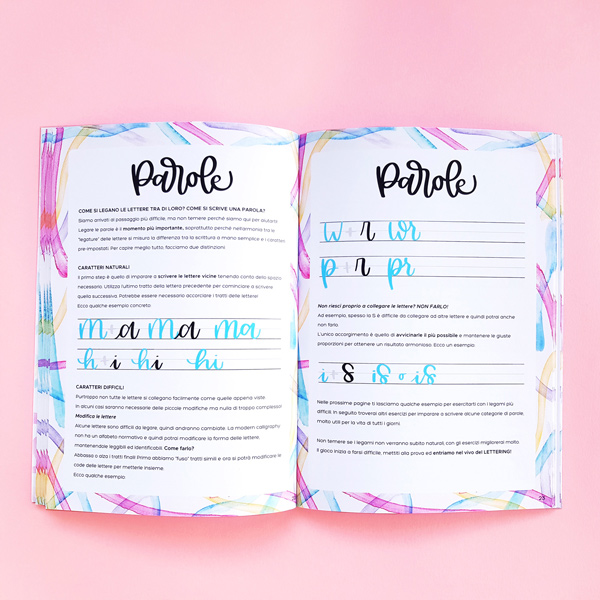 Parole
COME SI LEGANO LE LETTERE TRA DI LORO? COME SI SCRIVE UNA PAROLA?
Siamo arrivati al passaggio più difficile, ma non temere perché siamo qui per aiutarti.
Legare le parole è il momento più importante, soprattutto perché nell'armonia tra le
"legature" delle lettere si misura la differenza tra la scrittura a mano semplice e i caratteri
pre-impostati. Per capire meglio tutto, facciamo due distinzioni:
CARATTERI NATURALI
Il primo step è quello di imparare a scrivere le lettere vicine tenendo conto dello spazio
necessario. Utilizza l'ultimo tratto della lettera precedente per cominciare a scrivere
quella successiva. Potrebbe essere necessario accorciare i tratti delle lettere!
Ecco qualche esempio concreto:
M+a Ma ma
h+i hi hi
CARATTERI DIFFICILI
Purtroppo non tutte le lettere si collegano facilmente come quelle appena viste.
In alcuni casi saranno necessarie delle piccole modifiche ma nulla di troppo complesso!
Modifica le lettere
Alcune lettere sono difficili da legare, quindi andranno cambiate. La modern calligraphy
non ha un alfabeto normativo e quindi potrai modificare la forma delle lettere,
mantenendole leggibili ed identificabili. Come farlo?
Abbassa o alza i tratti finali (hmm abbiamo "fuso" tratti simili e ora si potrà modificare la
code delle lettere per metterle insieme.
Ecco qualche esempio:
Parole
w+r wr
p+r pr
Non riesci proprio a collegare le lettere? NON FARLO!
Ad esempio, spesso la S è difficile da collegare ad altre lettere e quindi potrai anche
non farlo.
L'unico accorgimento è quello di avvicinarle il più possibile e mantenere le giuste
proporzioni per ottenere un risultato armonioso. Ecco un esempio:
i+s is o is
Nelle prossime pagine ti lasciamo qualche esempio per esercitarti con i legami più
difficili. In seguito troverai altri esercizi per imparare a scrivere alcune categorie di parole,
molto utili per la vita di tutti i giorni.
Non temere se i legami non verranno subito naturali: con gli esercizi migliorerai molto.
Il gioco inizia a farsi difficile, mettiti alla prova ed entriamo nel vivo del LETTERING!